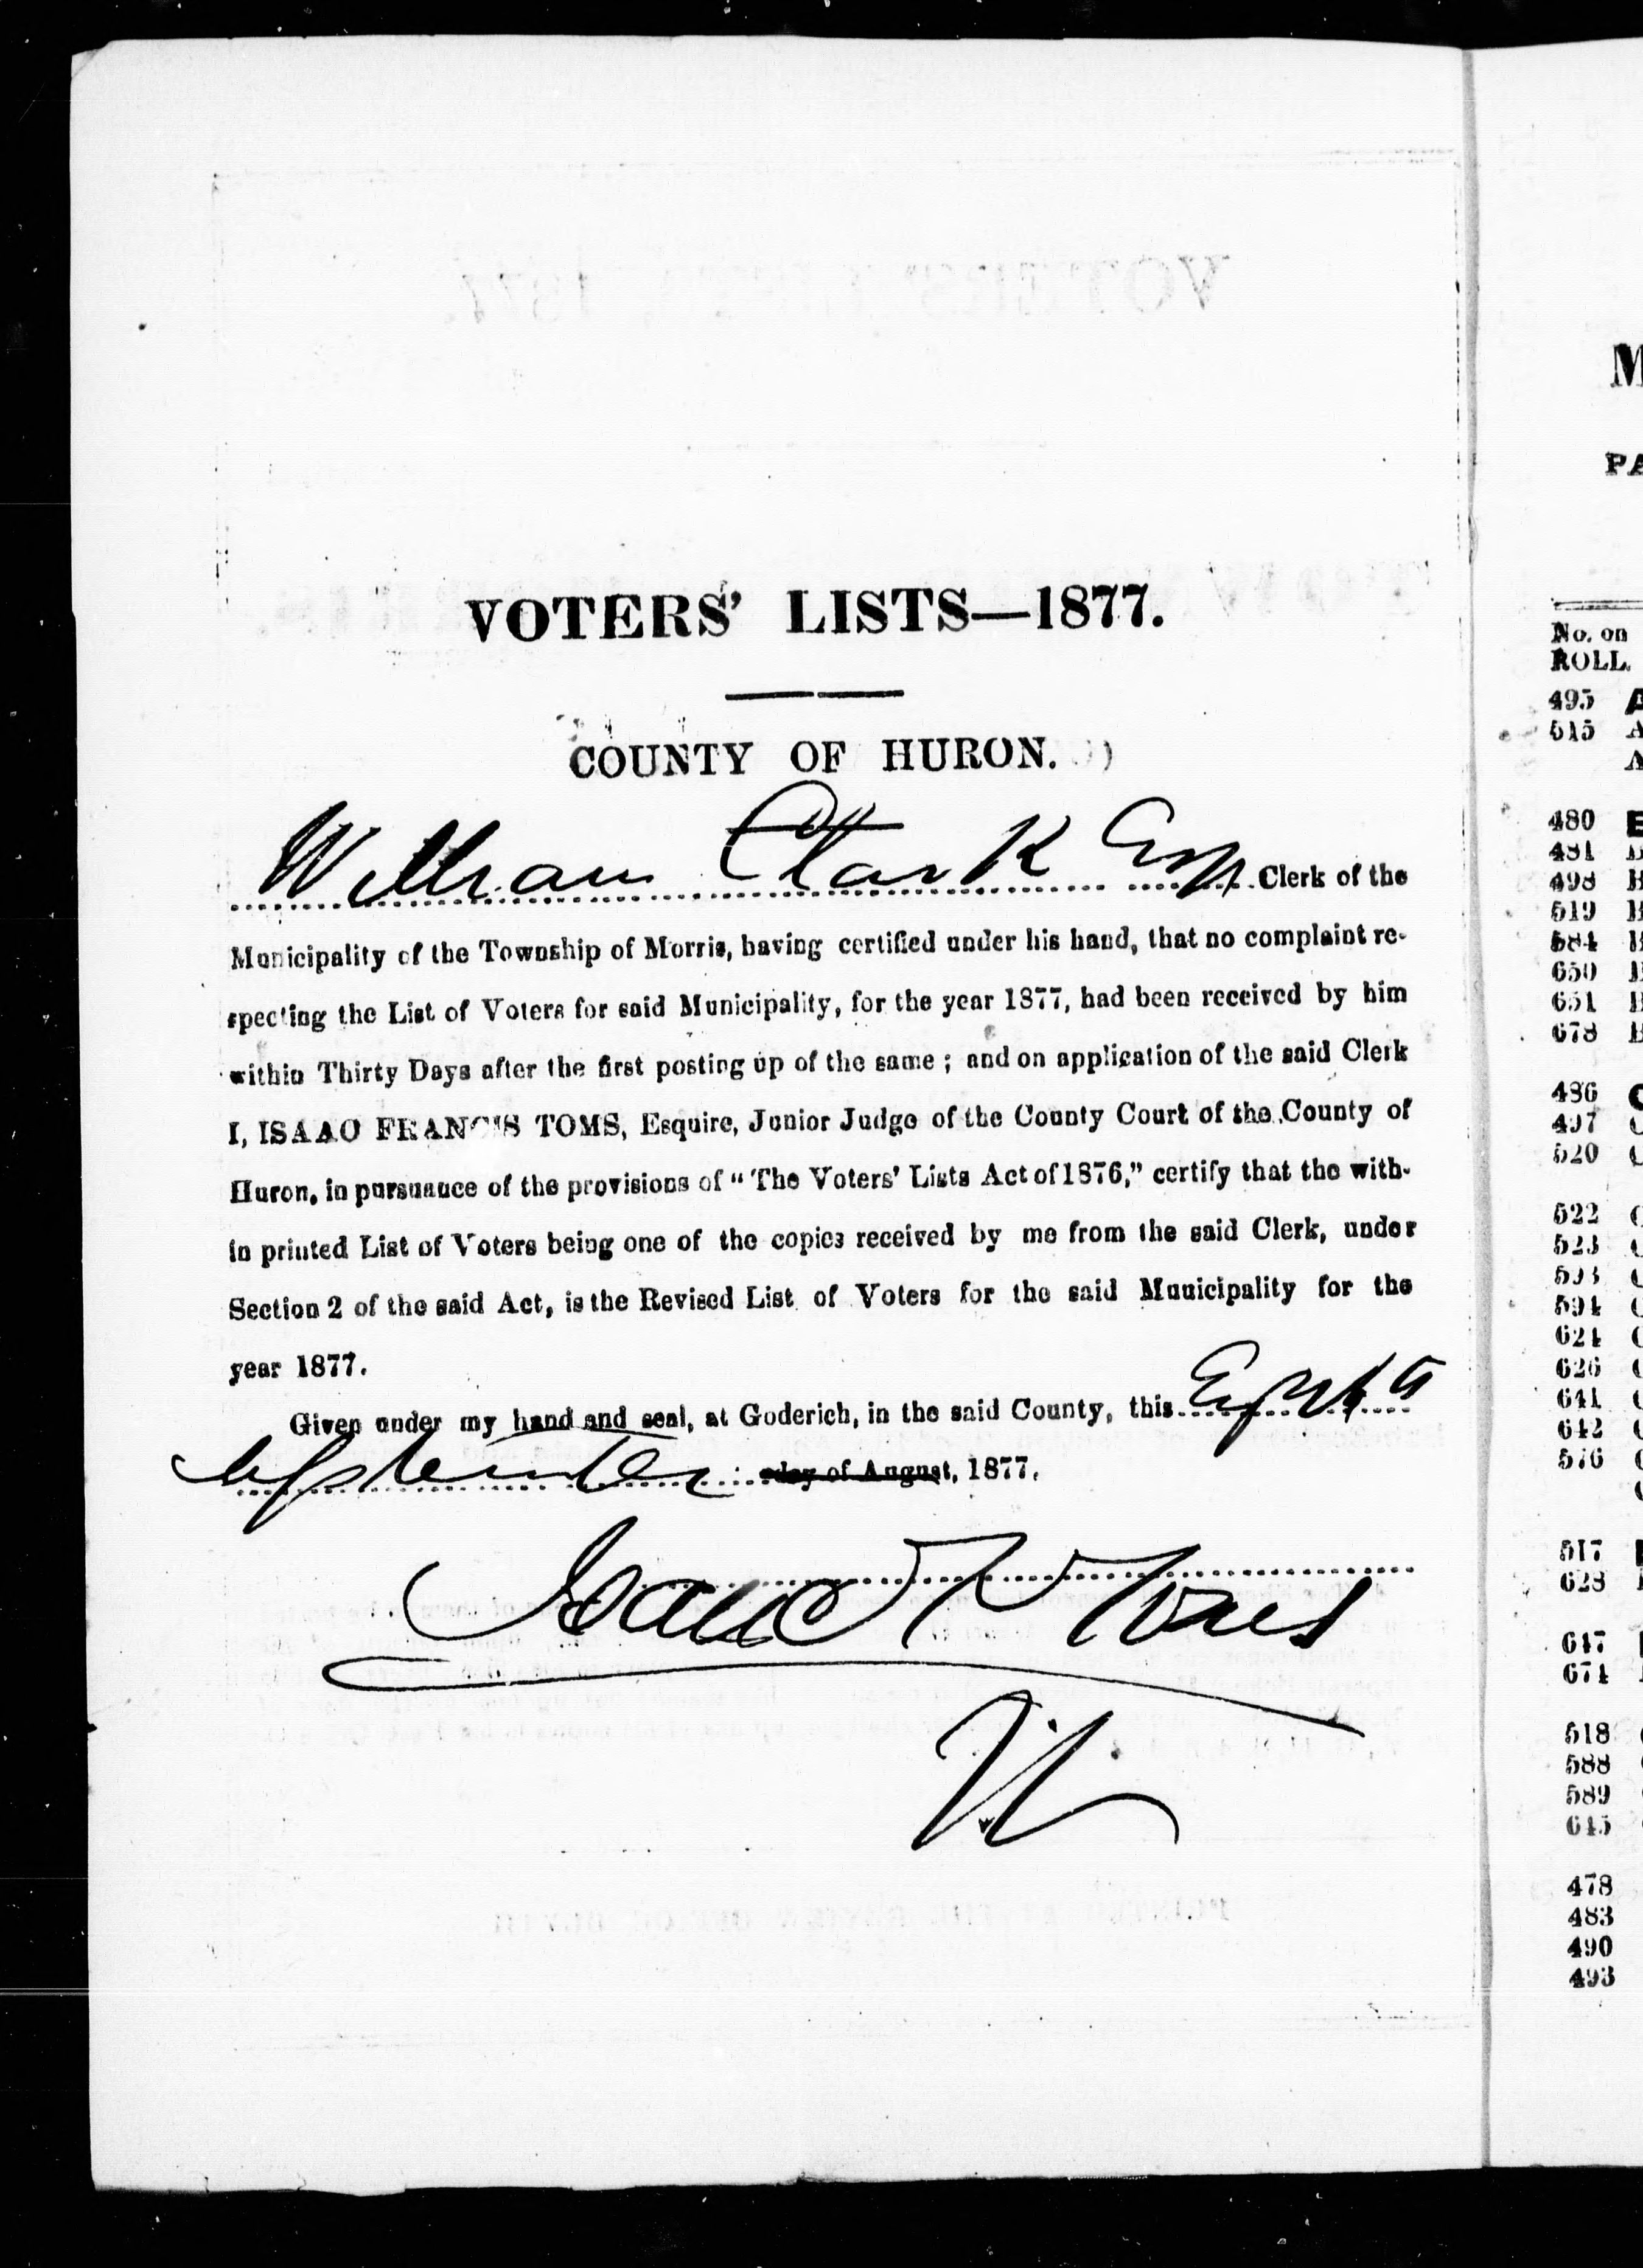 VOTERS' LISTS—1877.
COUNTY OF HURON.
William Clark Esq Clerk of the
Municipality of the Township of Morris, having certified under his hand, that no complaint re-
specting the List of Voters for said Municipality, for the year 1877, had been received by him
within Thirty Days after the first posting up of the same ; and on application of the said Clerk
I, ISAAC FRANCIS TOMS, Esquire, Junior Judge of the County Court of the County of
Huron, in pursuance of the provisions of " The Voters' Lists Act of 1876," certify that the with-
in printed List of Voters being one of the copies received by me from the said Clerk, under
Section 2 of the said Act, is the Revised List of Voters for the said Municipality for the
year 1877.
Given under my hand and seal, at Goderich, in the said County, this Eighth
September day of August, 1877.
Isaac F Toms
M
PA
No. on
ROLL.
495 A
515 A
A
480 B
481 B
498 B
519 B
584 B
650 B
651 B
678 B
486 C
497 C
520 C
522 C
523 C
593 C
594 C
624 C
626 C
641 C
642 C
576 C
C
517
628
647
674
518
588
589
645
478
483
490
493